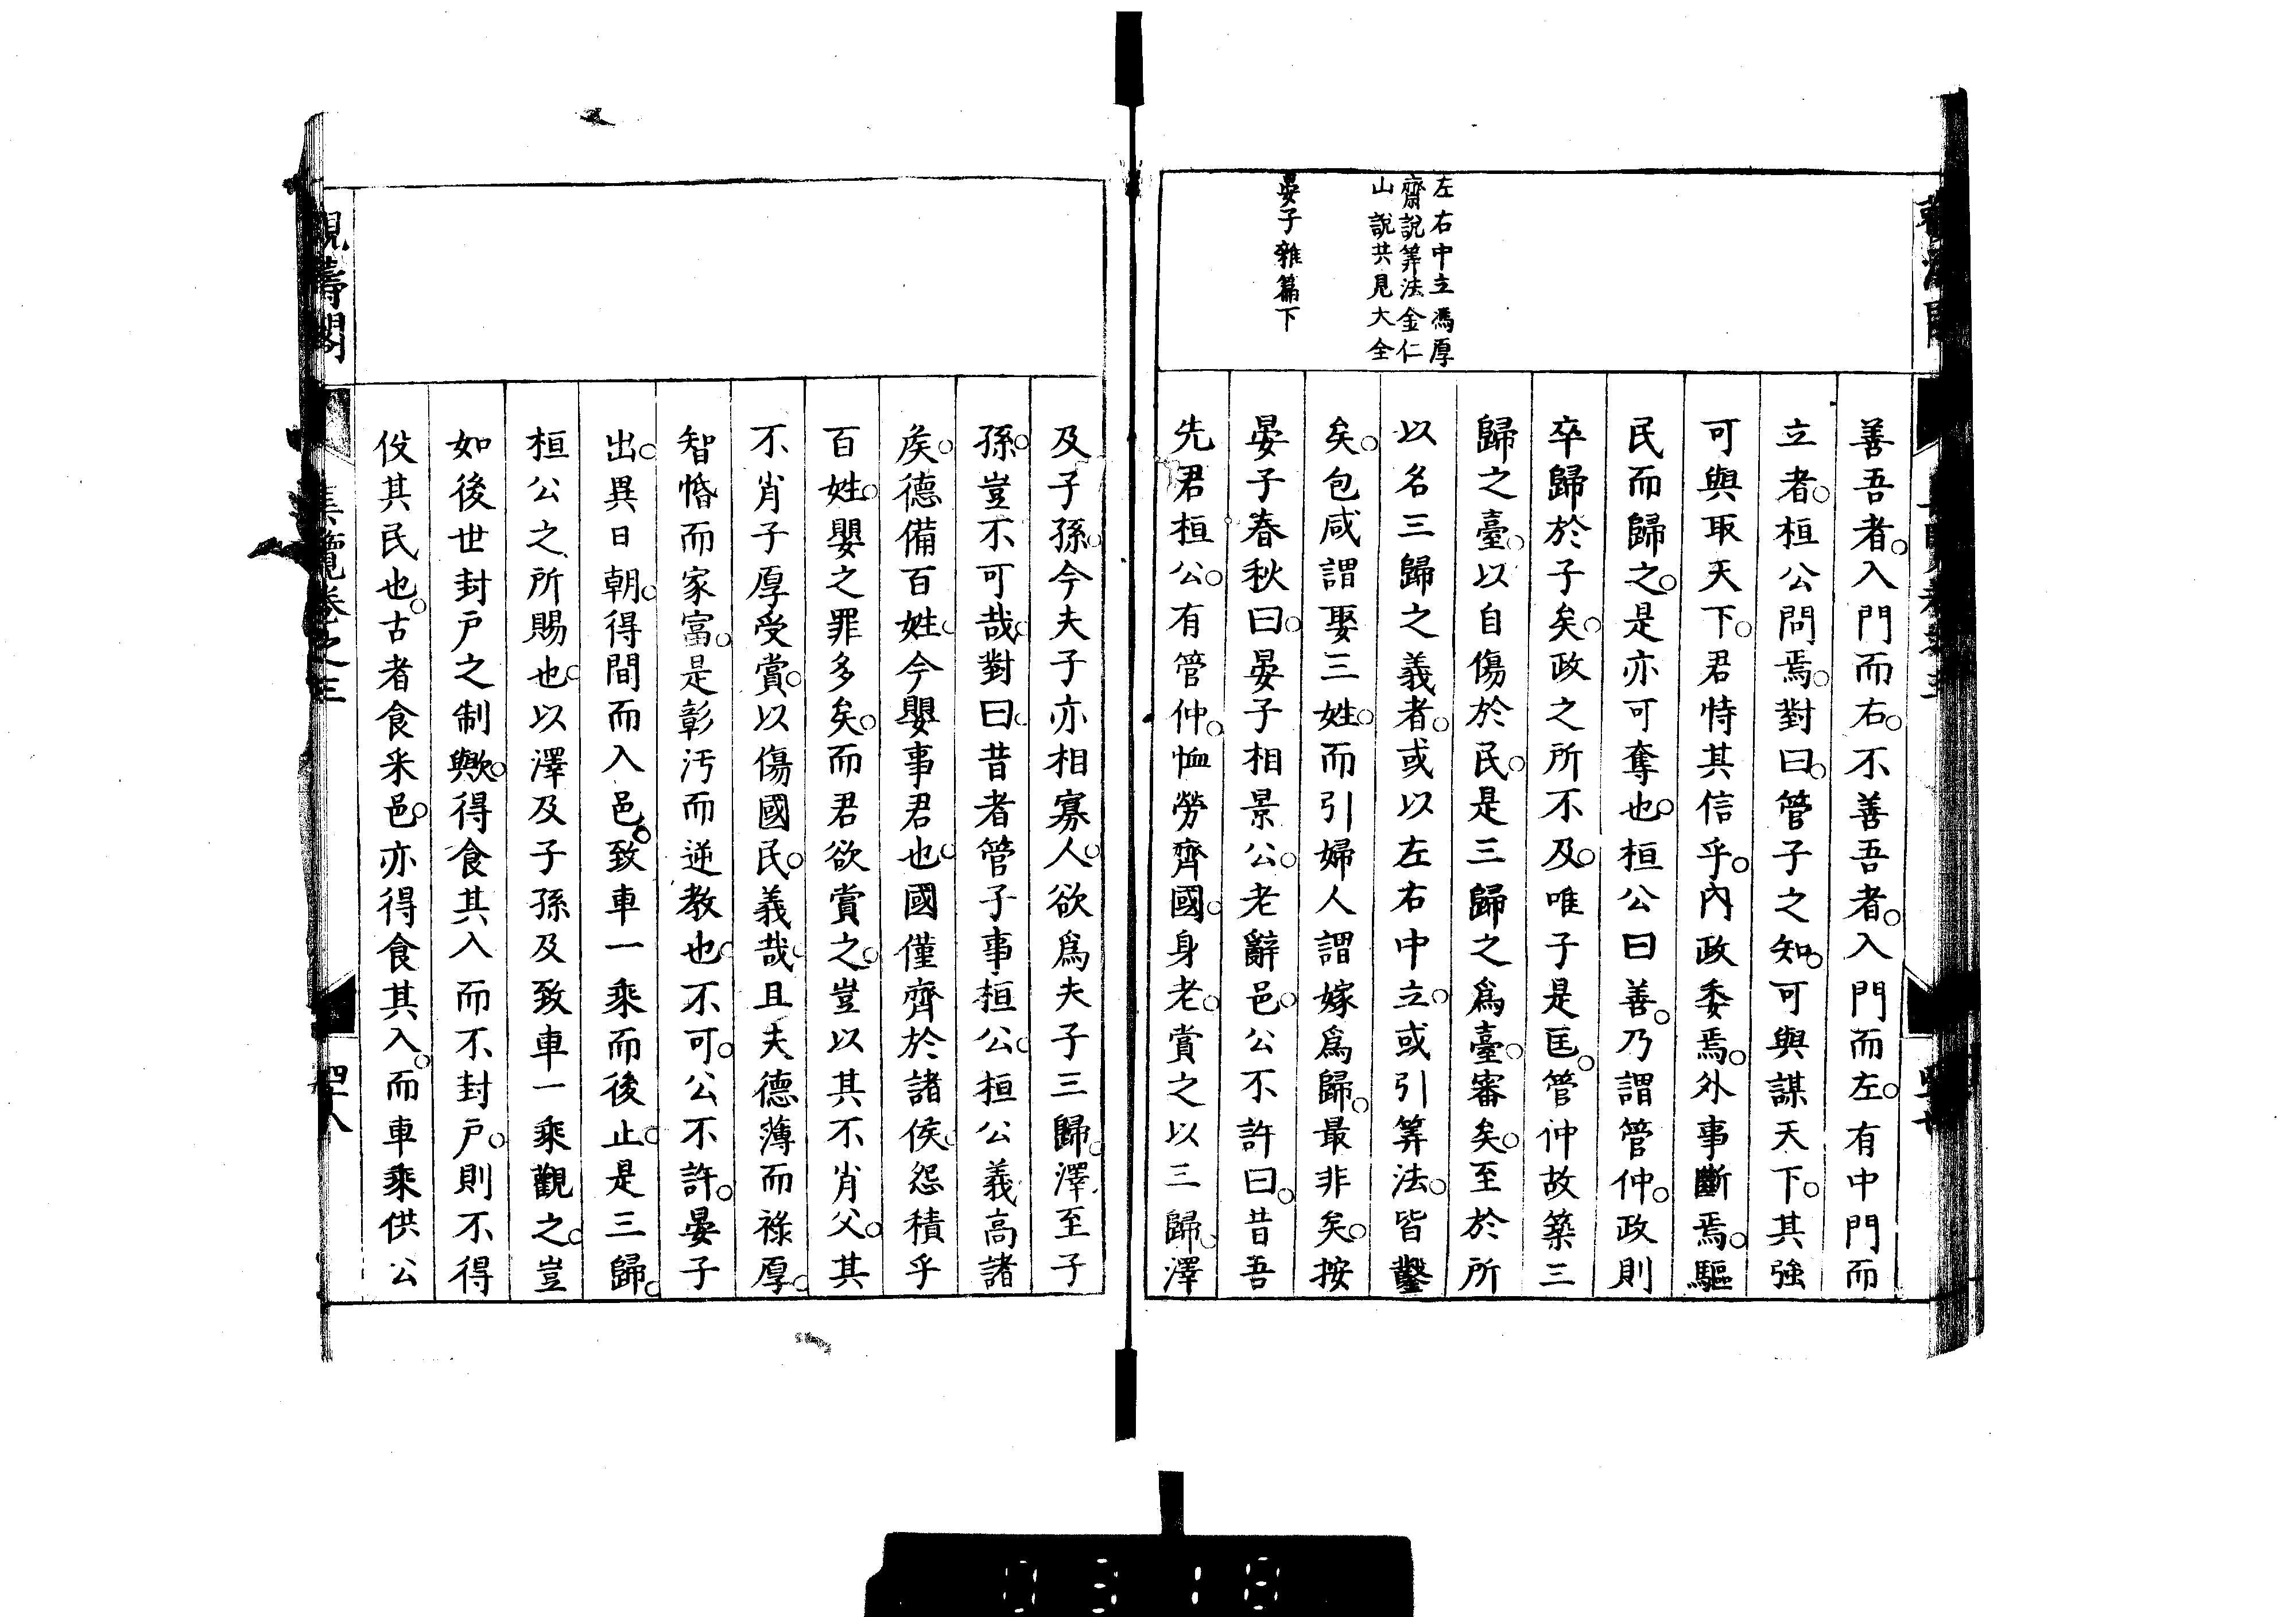 左右中立馮厚
齋說筭法金仁
山說共見大全
晏子雜篇下
善吾者入門而右不善吾者入門而左有中門而
立者桓公問焉對曰管子之知可與謀天下其強
可與取天下君恃其信乎內政委焉外事斷焉驅
民而歸之是亦可奪也桓公曰善乃謂管仲政則
卒歸於子矣政之所不及唯子是匡管仲故築三
歸之臺以自傷於民是三歸之爲臺審矣至於所
以名三歸之義者或以左右中立或引筭法皆鑿
矣包咸謂娶三姓而引婦人謂嫁爲歸最非矣按
晏子春秋曰晏子相景公老辭邑公不許曰昔吾
先君桓公有管仲恤勞齊國身老賞之以三歸澤
及子孫今夫子亦相寡人欲爲夫子三歸澤至子
孫豈不可哉對曰昔者管子事桓公桓公義高諸
侯德備百姓今嬰事君也國僅齊於諸侯怨積乎
百姓嬰之罪多矣而君欲賞之豈以其不肖父其
不肖子厚受賞以傷國民義哉且夫德薄而祿厚
智惛而家富是彰汚而逆教也不可公不許晏子
出異日朝得間而入邑致車一乘而後止是三歸
桓公之所賜也以澤及子孫及致車一乘觀之豈
如後世封戶之制歟得食其入而不封戶則不得
役其民也古者食采邑亦得食其入而車乘供公
觀濤閣
集覽卷之三
四十八